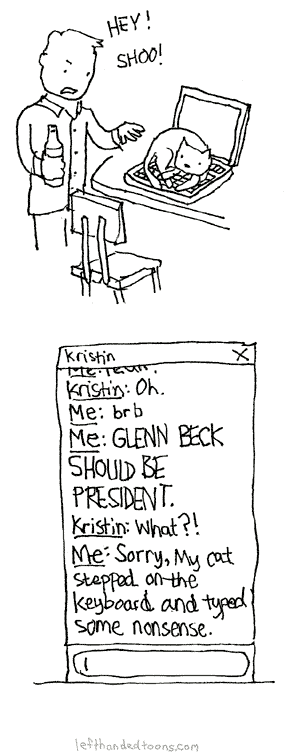 HEY!
SHOO!
Kristin X
Me:
Kristin: Oh.
Me: brb
Me: GLENN BECK
SHOULD BE
PRESIDENT.
Kristin: What?!
Me: Sorry, My cat
stepped on the
keyboard and typed
some nonsense.
lefthandedtoons.com